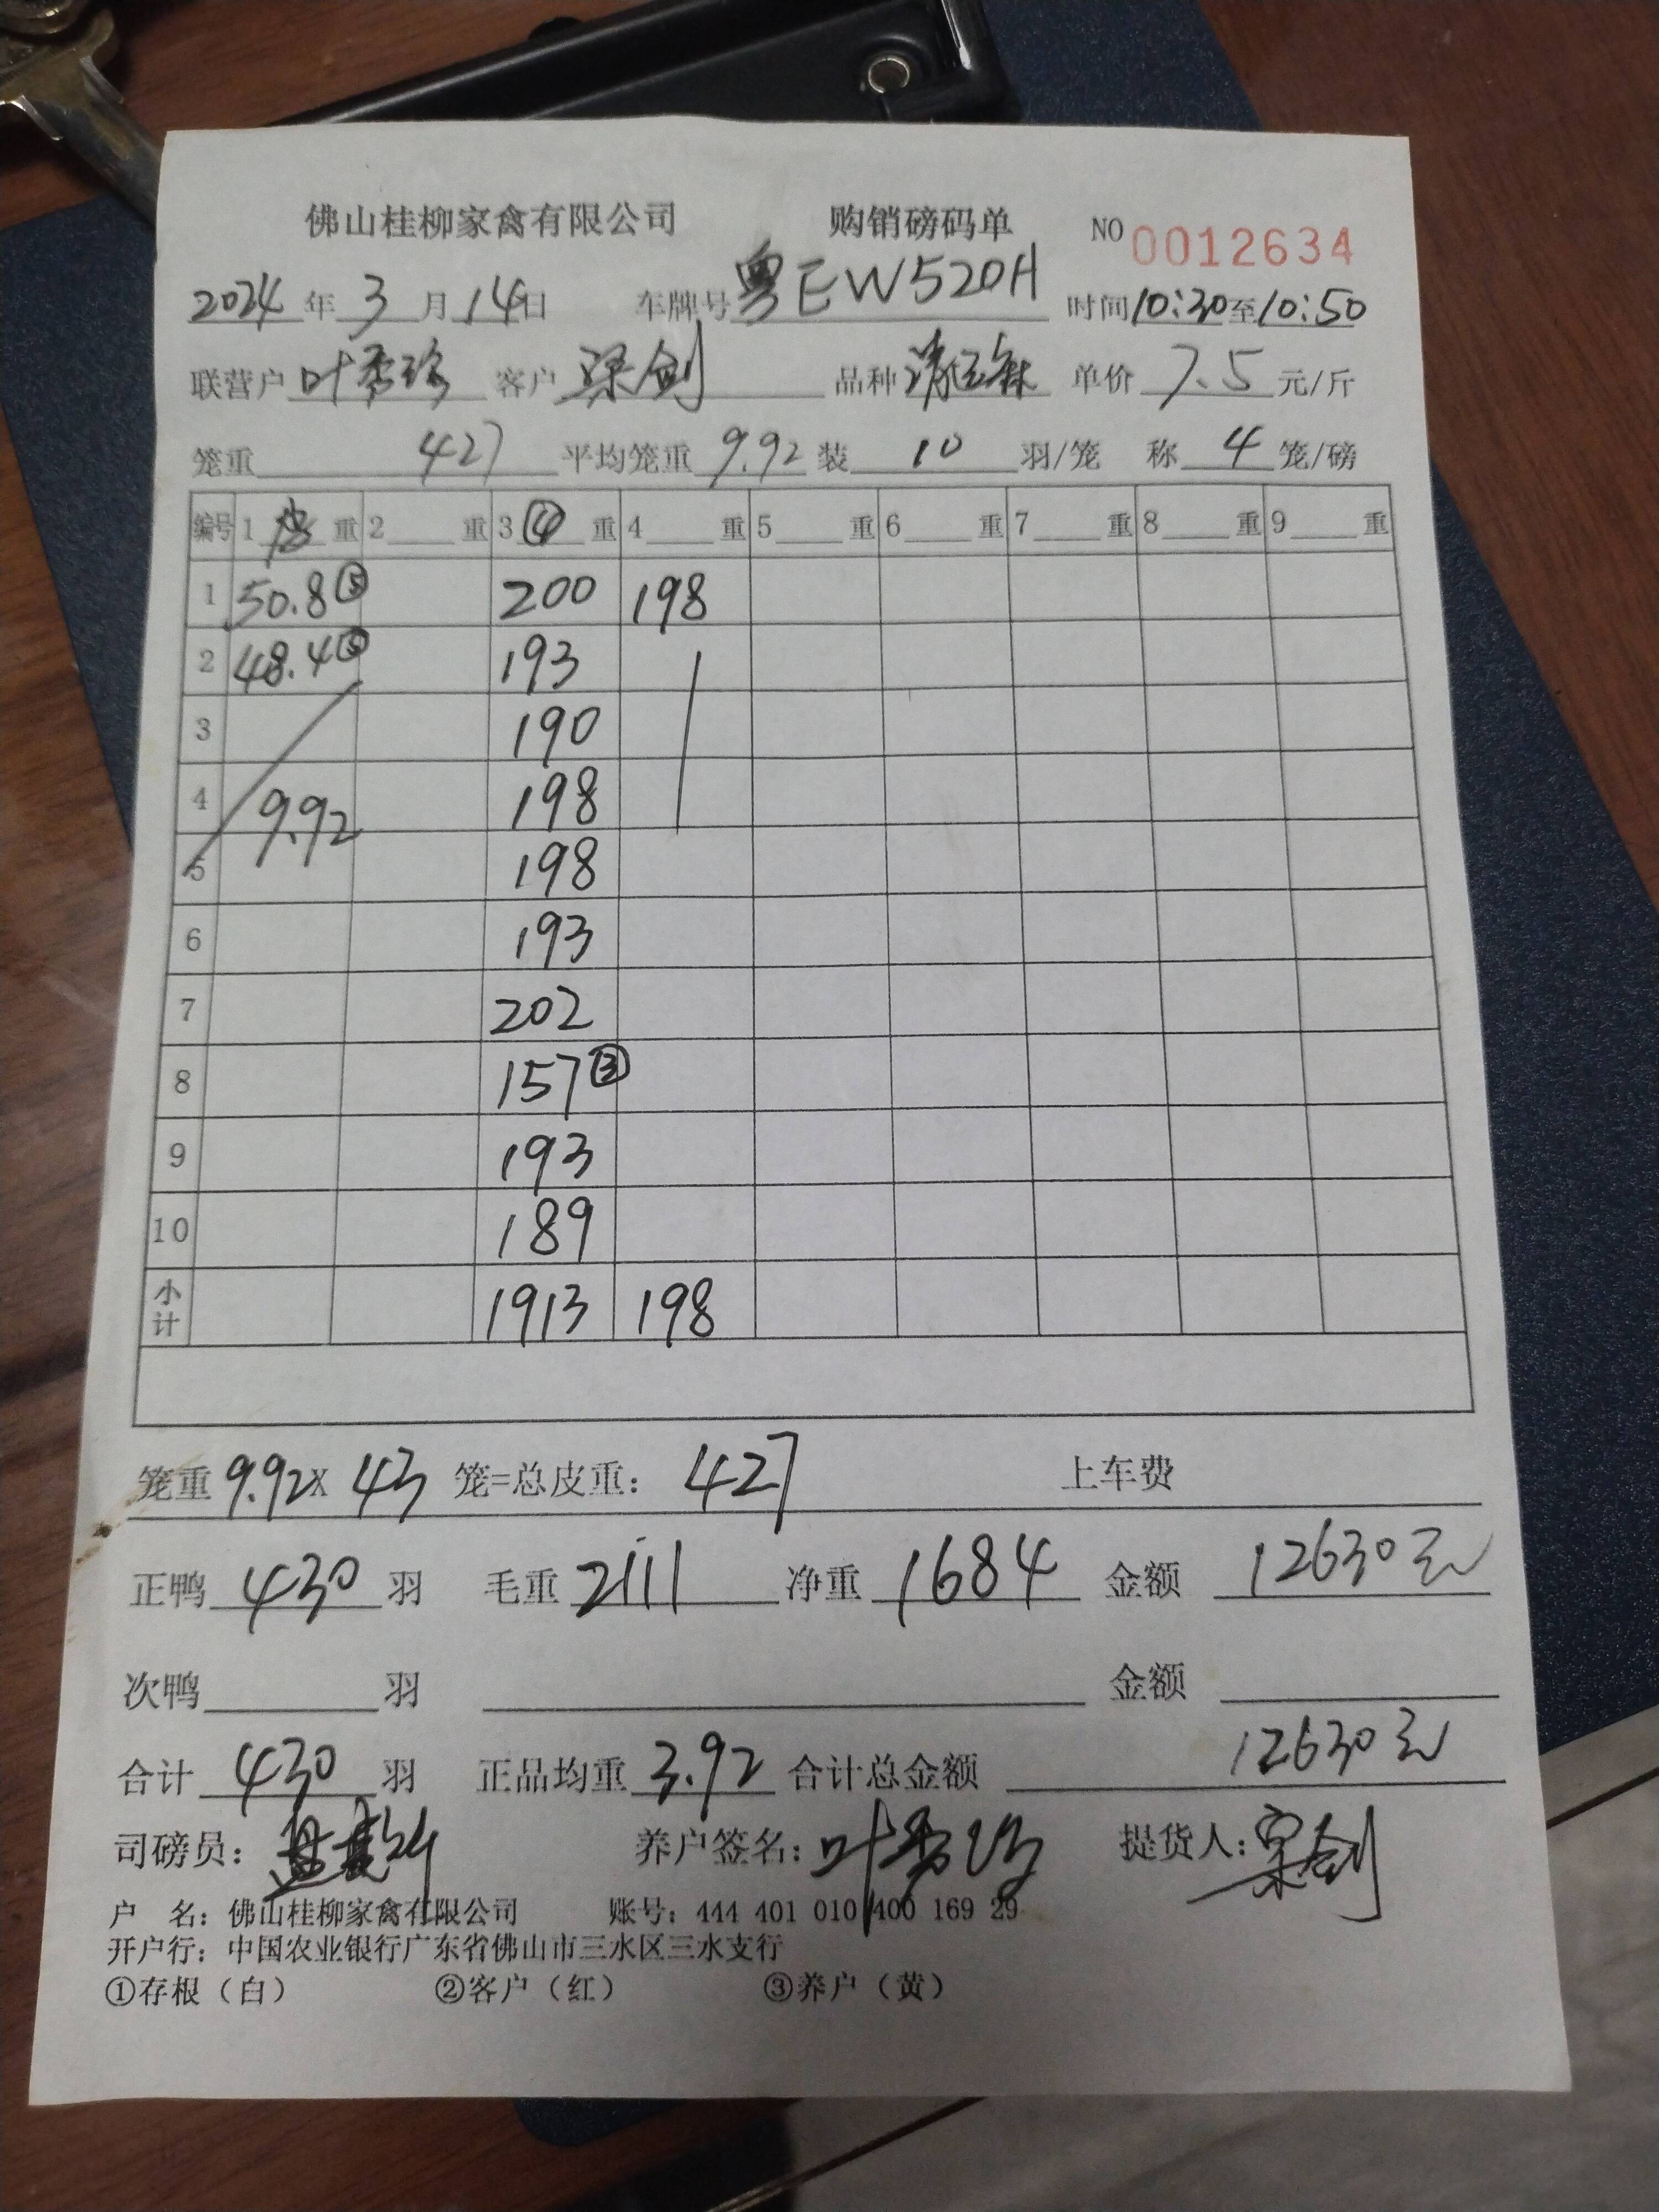 佛山桂柳家禽有限公司 购销磅码单 NO 0012634
2024年3月14日 车牌号粤EW520H 时间10:30至10:50
联营户叶秀 客户梁剑 品种 单价7.5元/斤
笼重427平均笼重9.92装10羽/笼 称4笼/磅
编号 1重 2重 3④重 4重 5重 6重 7重 8重 9重
1 50.8⑤ 200 198
2 48.4⑤ 193
3 190
4 9.92 198
5 198
6 193
7 202
8 157③
9 193
10 189
小计 1913 198
笼重9.92X43笼=总皮重：427 上车费
正鸭430羽 毛重2111净重1684 金额12630元
次鸭羽 金额
合计430羽 正品均重3.92合计总金额12630元
司磅员： 养户签名：叶秀 提货人：梁剑
户 名：佛山桂柳家禽有限公司 账号：444 401 010 400 169 29
开户行：中国农业银行广东省佛山市三水区三水支行
①存根（白） ②客户（红） ③养户（黄）